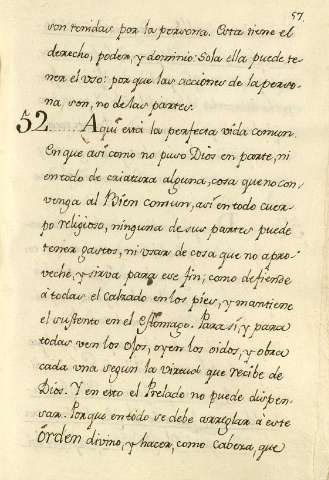 57.
son tenidas por la persona. Esta tiene el
derecho, poder, y dominio: Sola ella puede te
ner el uso: por que las acciones de la perso
na son, no de las partes.
52. Aqui está la perfecta vida comun.
En que así como no puso Dios en parte, ni
en todo de criatura alguna, cosa que no con
venga al Bien comun, así en todo cuer
po religioso, ninguna de sus partes puede
tener gastos, ni usar de cosa que no apro
veche, y sirva para ese fin; como defiende
á todas el calzado en los pies, y mantiene
el sustento en el Estomago. Para sí, y para
todas ven los ojos, oyen los oidos, y obra
cada una segun la virtud que recibe de
Dios. Y en esto el Prelado no puede dispen
sar. Porque en todo se debe arreglar á este
órden divino, y hacer, como Cabeza, que